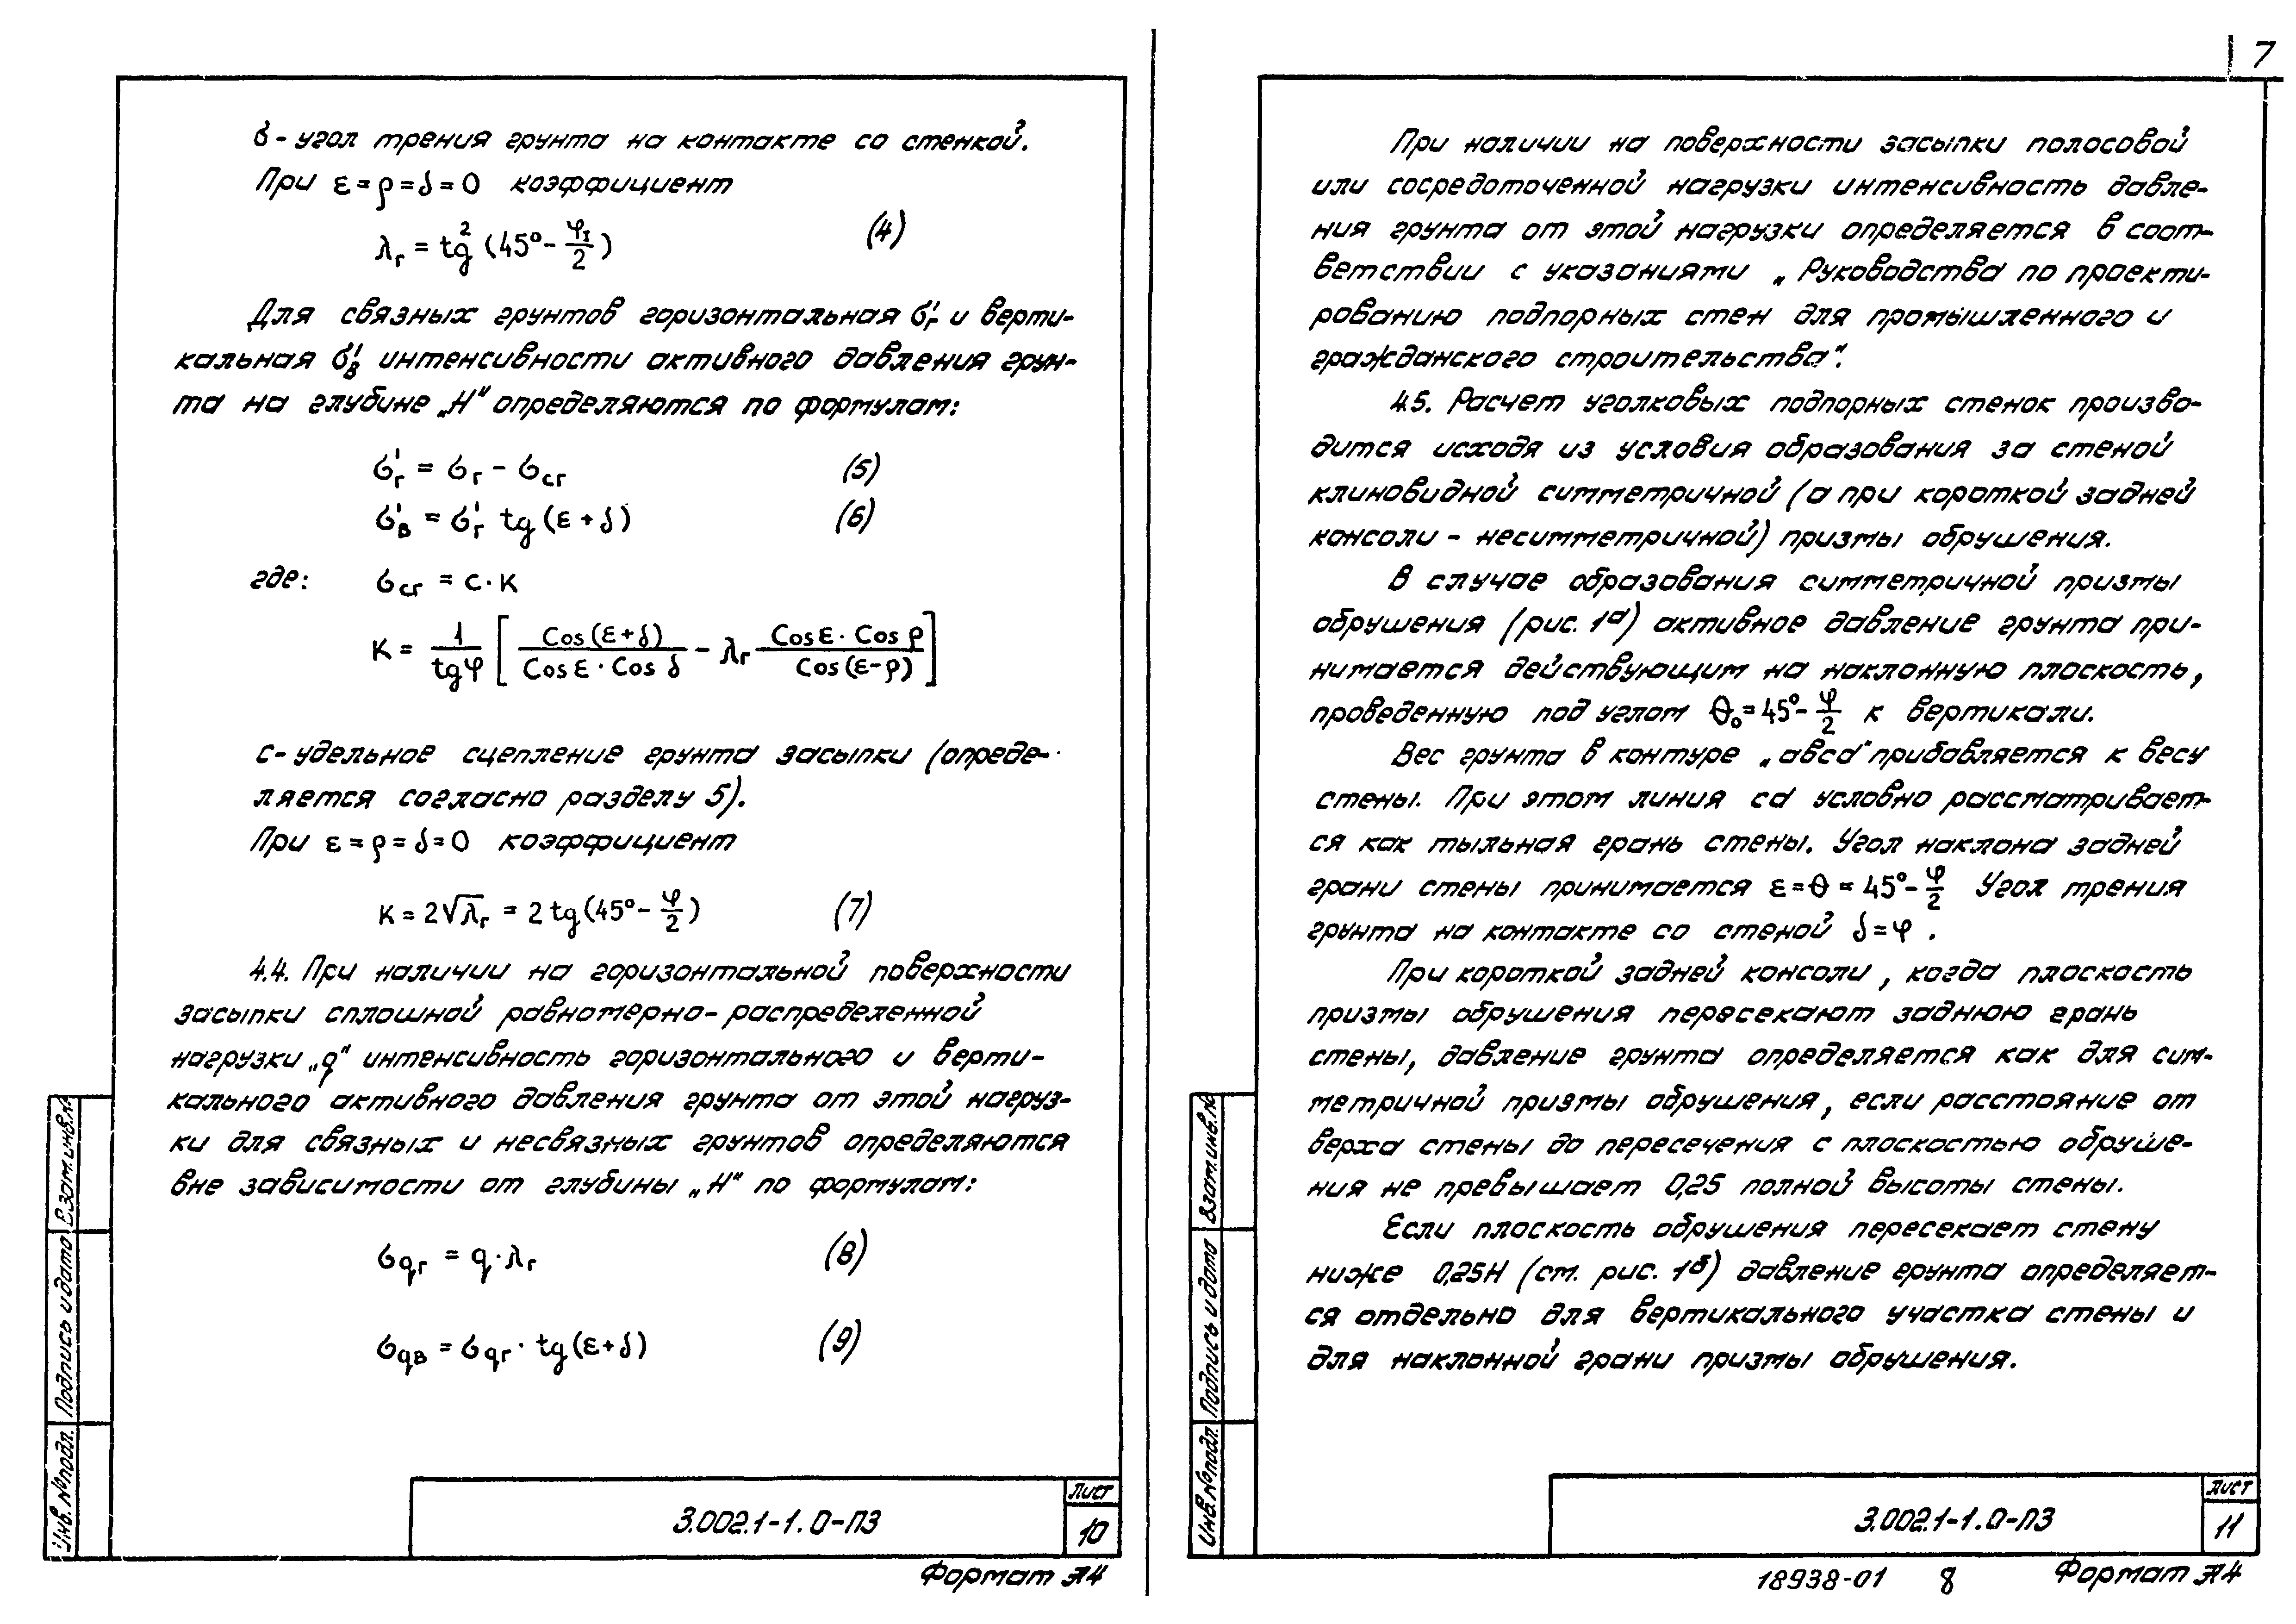 7
δ - угол трения грунта на контакте со стенкой.
При ε = ρ = δ = 0 коэффициент
λг = tg² (45° - φI/2) (4)
Для связных грунтов горизонтальная σ'г и верти-
кальная σ'в интенсивности активного давления грун-
та на глубине „Н" определяются по формулам:
σ'г = σг - σсг (5)
σ'в = σ'г tg (ε + δ) (6)
где: σсг = с · К
К = 1/tgφ [ Cos (ε+δ)/Cos ε · Cos δ - λг Cos ε · Cos ρ/Cos (ε-ρ) ]
с - удельное сцепление грунта засыпки (опреде-
ляется согласно разделу 5).
При ε = ρ = δ = 0 коэффициент
К = 2√λг = 2 tg (45° - φ/2) (7)
4.4. При наличии на горизонтальной поверхности
засыпки сплошной равномерно-распределенной
нагрузки „q" интенсивность горизонтального и верти-
кального активного давления грунта от этой нагруз-
ки для связных и несвязных грунтов определяются
вне зависимости от глубины „Н" по формулам:
σqг = q · λг (8)
σqв = σqг · tg (ε+δ) (9)
Взам. инв.№
Подпись и дата
Инв. № подл.
3.002.1-1.0-ПЗ
Лист
10
Формат А4
При наличии на поверхности засыпки полосовой
или сосредоточенной нагрузки интенсивность давле-
ния грунта от этой нагрузки определяется в соот-
ветствии с указаниями „Руководства по проекти-
рованию подпорных стен для промышленного и
гражданского строительства".
4.5. Расчет уголковых подпорных стенок произво-
дится исходя из условия образования за стеной
клиновидной симметричной (а при короткой задней
консоли - несимметричной) призмы обрушения.
В случае образования симметричной призмы
обрушения (рис. 1а) активное давление грунта при-
нимается действующим на наклонную плоскость,
проведенную под углом θ₀ = 45° - φ/2 к вертикали.
Вес грунта в контуре „авсd" прибавляется к весу
стены. При этом линия cd условно рассматривает-
ся как тыльная грань стены. Угол наклона задней
грани стены принимается ε = θ = 45° - φ/2 Угол трения
грунта на контакте со стеной δ = φ .
При короткой задней консоли , когда плоскость
призмы обрушения пересекают заднюю грань
стены, давление грунта определяется как для сим-
метричной призмы обрушения, если расстояние от
верха стены до пересечения с плоскостью обруше-
ния не превышает 0,25 полной высоты стены.
Если плоскость обрушения пересекает стену
ниже 0,25Н (см. рис. 1б) давление грунта определяет-
ся отдельно для вертикального участка стены и
для наклонной грани призмы обрушения.
Взам. инв.№
Подпись и дата
Инв. № подл.
3.002.1-1.0-ПЗ
Лист
11
18938-01 8 Формат А4